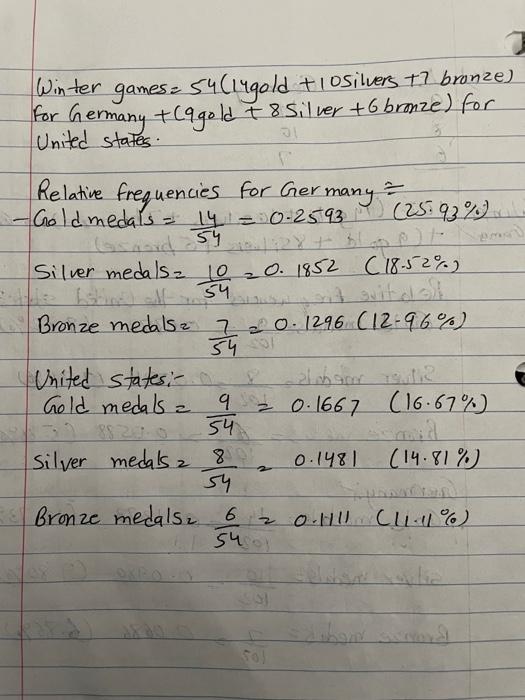 Winter games = 54 (14 gold + 10 Silvers + 7 bronze)
for Germany + (9 gold + 8 Silver + 6 bronze) for
United states.
Relative frequencies for Germany =
- Gold medals = 14/54 = 0.2593 (25.93%)
Silver medals = 10/54 = 0.1852 (18.52%)
Bronze medals = 7/54 = 0.1296 (12.96%)
United states:-
Gold medals = 9/54 = 0.1667 (16.67%)
Silver medals = 8/54 = 0.1481 (14.81%)
Bronze medals = 6/54 = 0.1111 (11.11%)